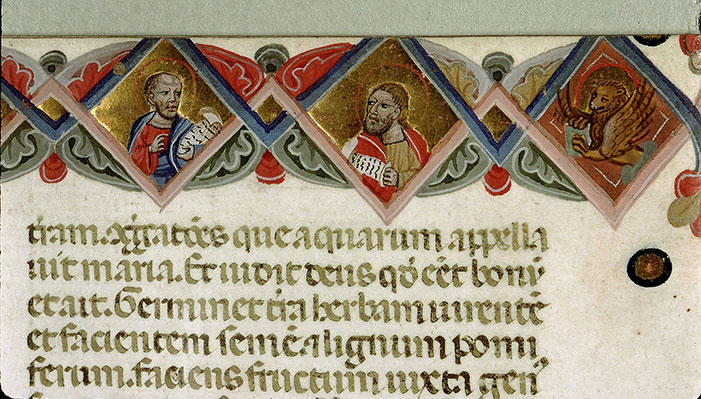 t̃ram. ꝯg̃gatões que aquarum appella
uit maria. Et uidit deus qð eēt bonū
et ait. Germinet t̃ra herbam uirentē
et facientem semē. ⁊ lignum pomi
ferum. faciens fructum iuxta gen̄